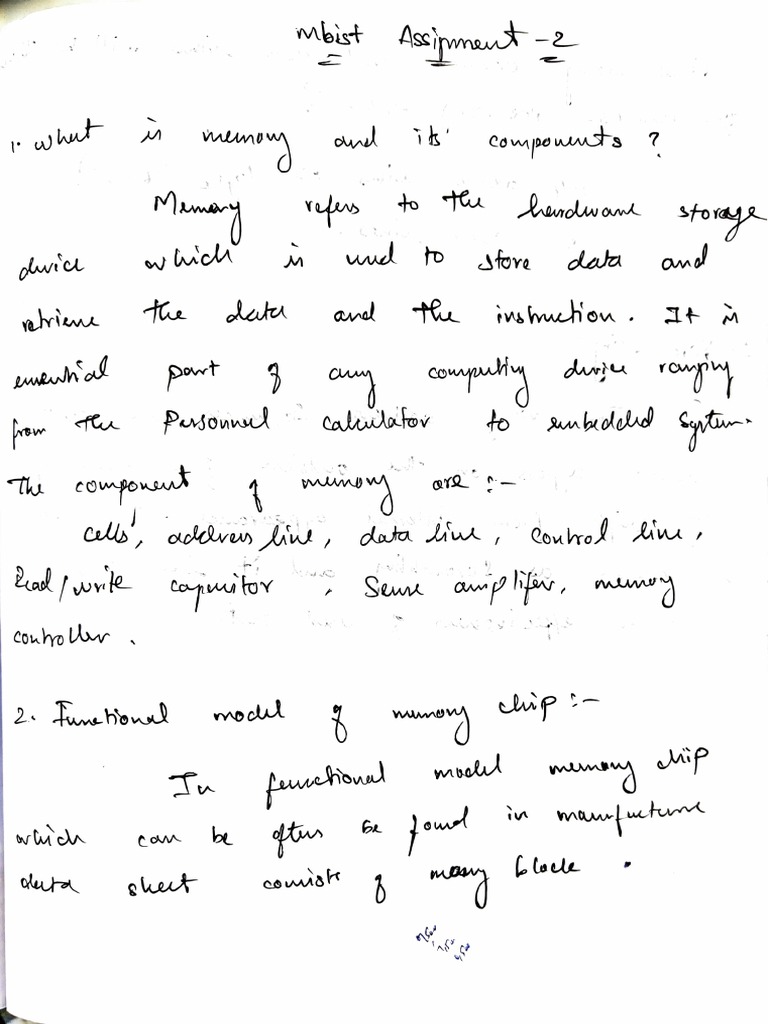 Mbist Assignment - 2
1. What is memory and its components?
Memory refers to the hardware storage
device which is used to store data and
retrieve the data and the instruction. It is
essential part of any computing device ranging
from the Personnel calculator to embedded system.
The component of memory are :-
cells, address line, data line, control line,
Read/write capacitor, Sense amplifer, memory
controller.
2. Functional model of memory chip :-
In functional model memory chip
which can be often be found in manufacture
data sheet consists of many block.